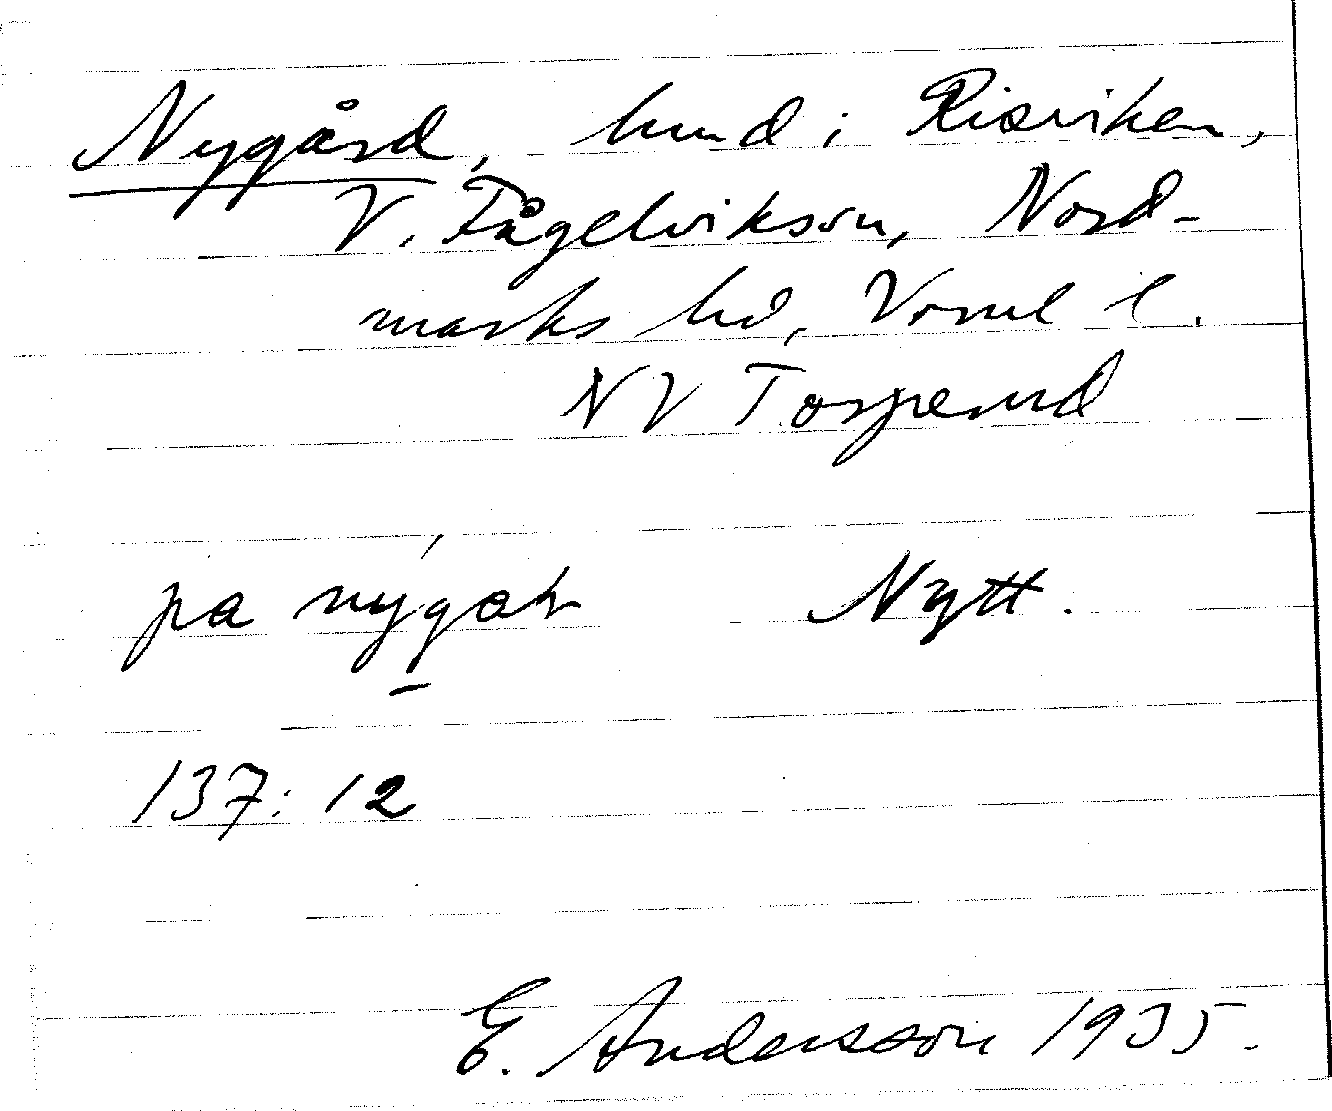 Nygård, hmd i Risviken,
V. Fågelvikssn, Nord-
marks hd, Vrml l.
NV Torperud
pa nýgaḷ Nytt.
137: 12
E. Andersson 1935.